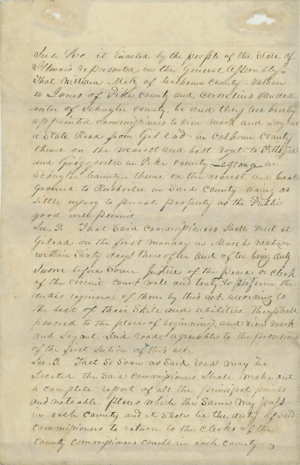 Sec 1. Be it Enacted by the people of the State of
Illinois represented in the General Assembly,
That William Metz of Calhoun County, Nathan
W Jones of Pike County and Cornelius Vande
venter of Schuyler County be and they are hereby
appointed Commissioners to view mark and lay out
a State Road from Gilead in Calhoun County
thence on the nearest and best rout to Pittsfield
and Griggsville in Pike County
Schuyler County thence on the nearest and best
Ground to Rushville in said County doing as
little injury to private property as the Public
good will permit
Sec. 2. That said Commissioners shall meet at
Gilead on the first monday in March next or
within Sixty days thereafter and after being duly
Sworn before Some justice of the peace or Clerk
of the circuit court well and truly to perform the
duties required of them by this act according to
the best of their Skill and abilities, they shall
proceed to the place of beginning, and view mark
and lay out Said road agreeable to the provisions
of the first Section of this act.
Sec. 3. That So Soon as Said road may be
located the Said commissioners Shall make out
a complete report of all the principal points
and notable places which the Same may pass
in each County and it Shall be the duty of Said
commissioners to return to the Clerks of the
County commissioners courts in each County